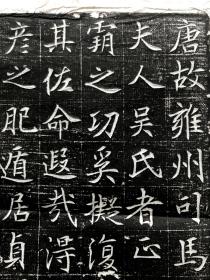 唐故雍州司馬
夫人吴氏者正
霸之功奚擬復
其佐命遐哉淂
彦之肥遁居貞